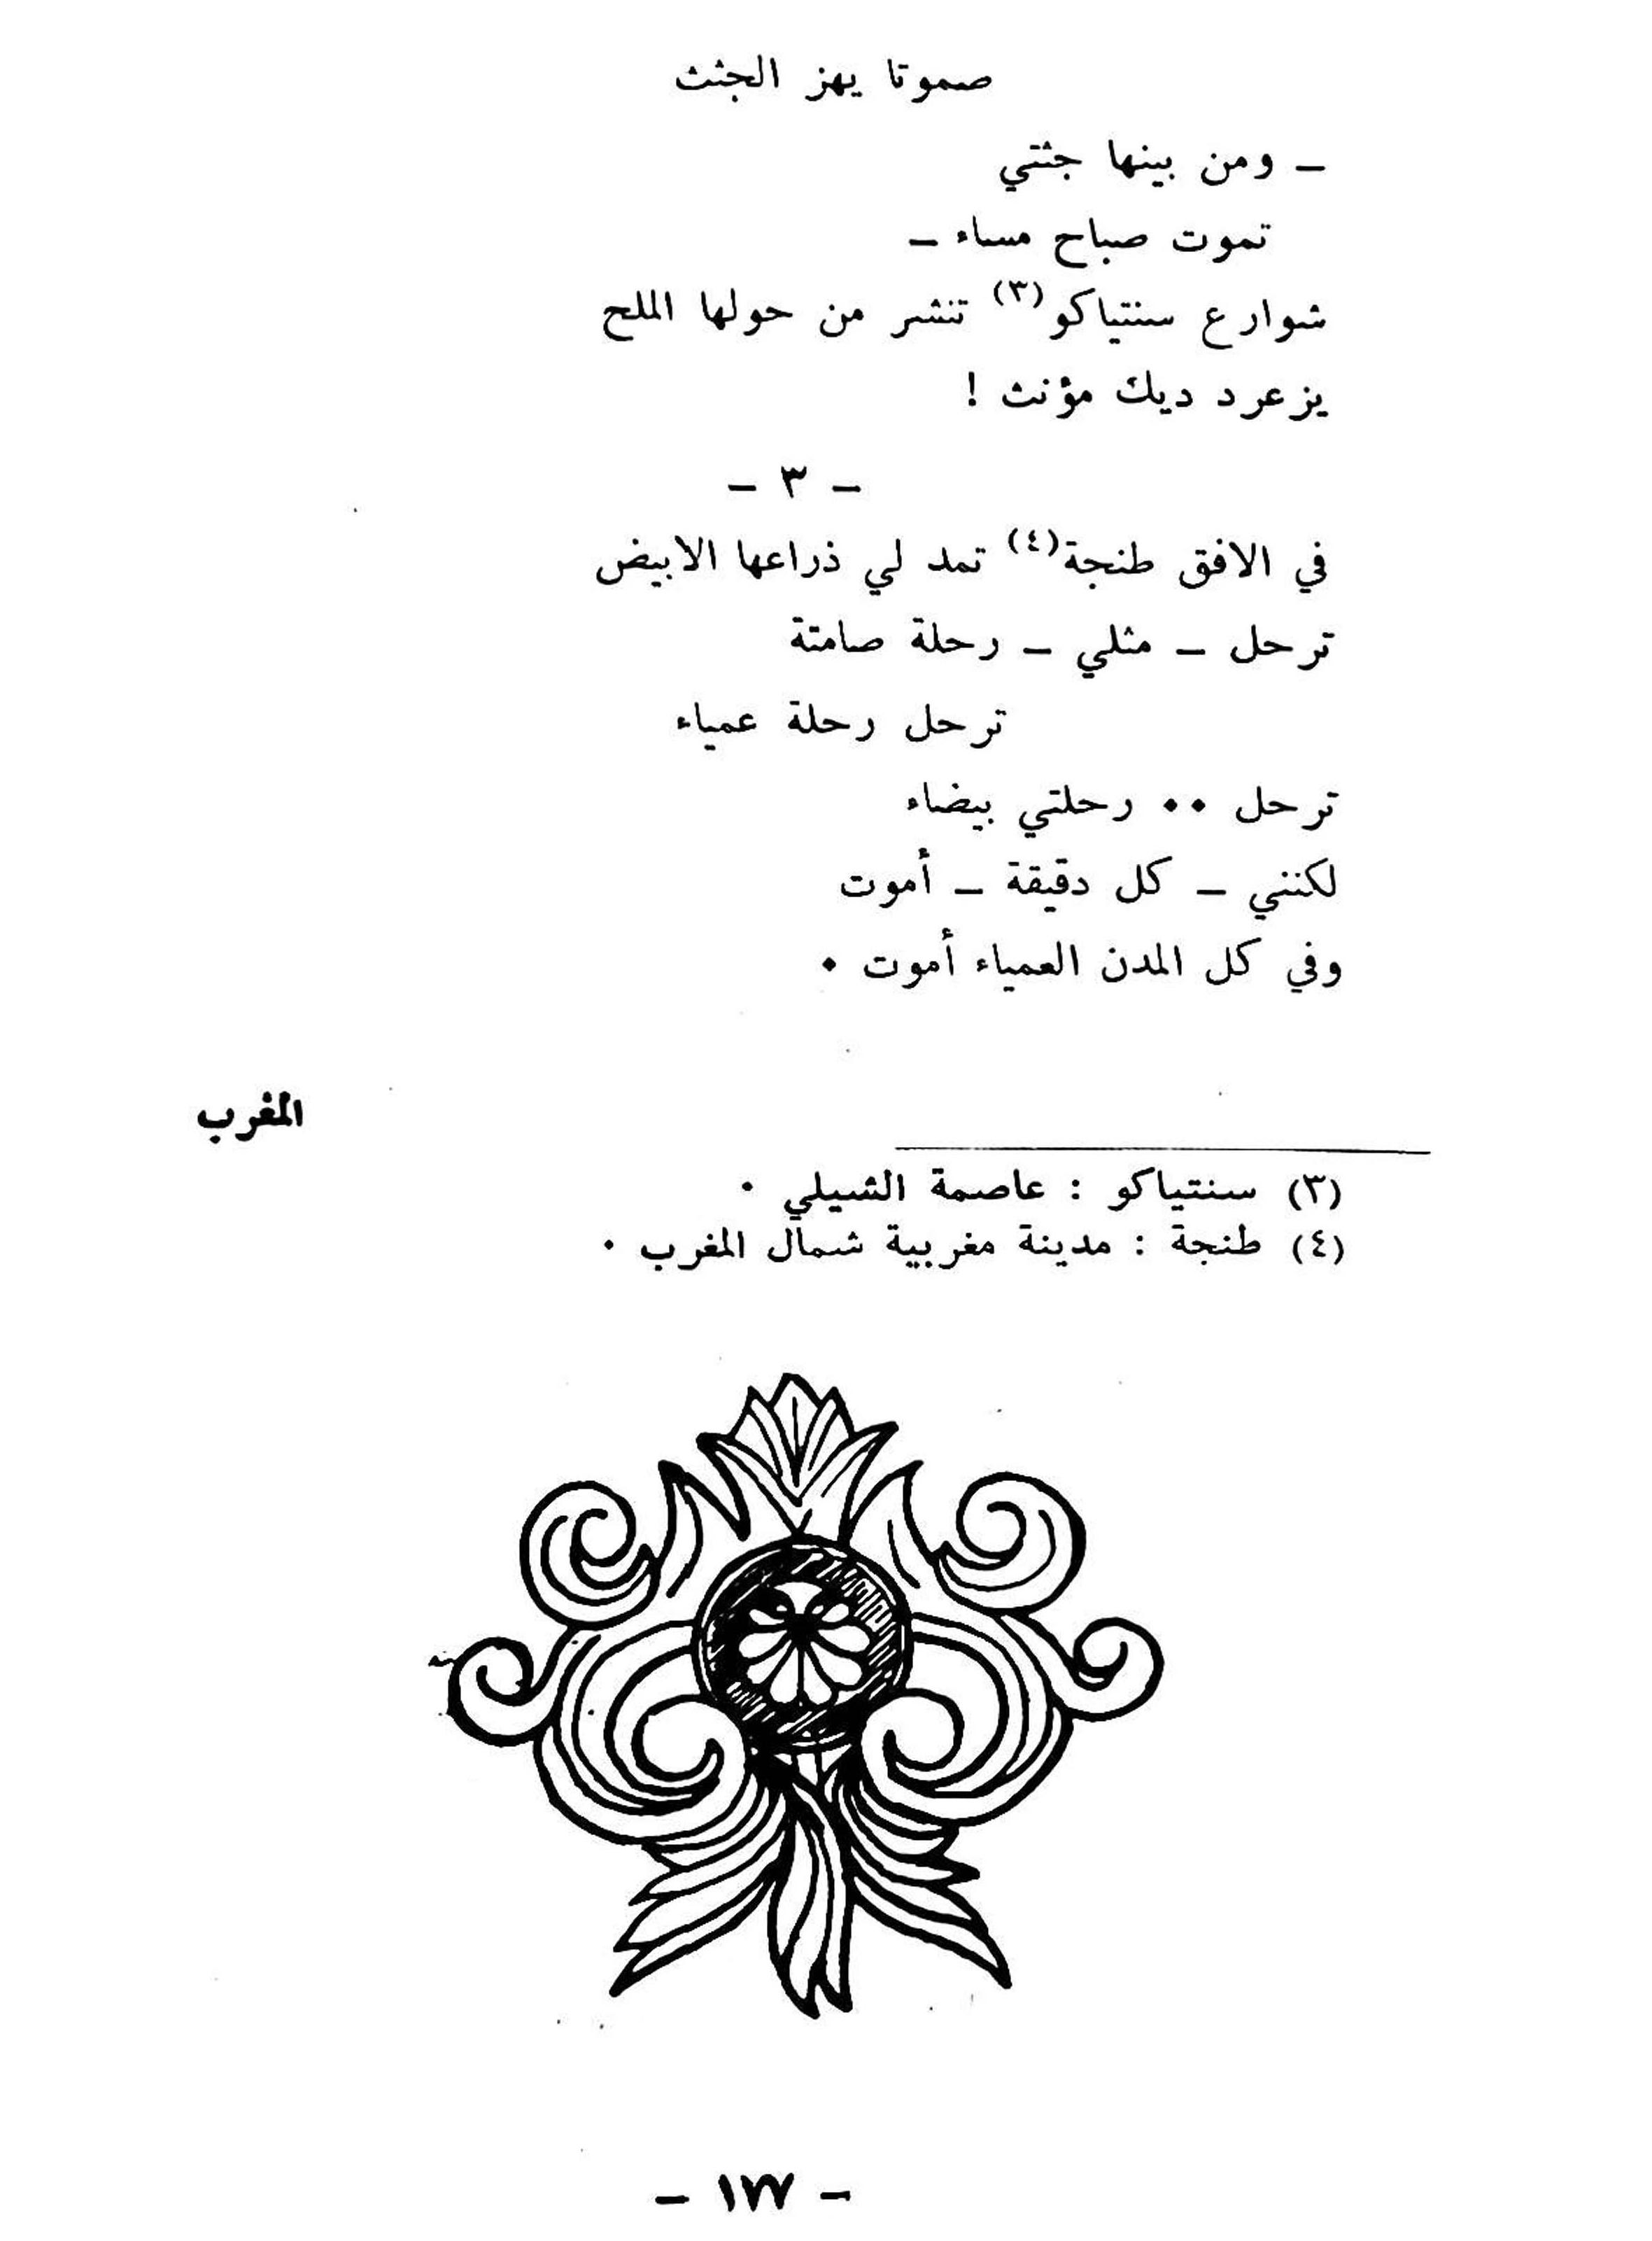 صموتا يهز الجثث
ــ ومن بينها جثتي
تموت صباح مساء ــ
شوارع سنتياكو(٣) تنشر من حولها الملح
يزعرد ديك مؤنث !
ــ ٣ ــ
في الافق طنجة(٤) تمد لي ذراعها الابيض
ترحل ــ مثلي ــ رحلة صامتة
ترحل رحلة عمياء
ترحل ٠٠ رحلتي بيضاء
لكنني ــ كل دقيقة ــ أموت
وفي كل المدن العمياء أموت ٠
المغرب
(٣) سنتياكو : عاصمة الشيلي ٠
(٤) طنجة : مدينة مغربية شمال المغرب ٠
ــ ١٧٧ ــ